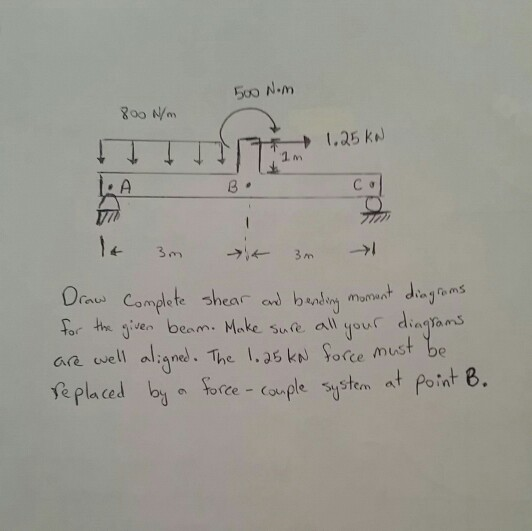 500 N.m
800 N/m
1.25 KN
1m
A
B
C
3m
3m
Draw Complete shear and bending moment diagrams
for the given beam. Make sure all your diagrams
are well aligned. The 1.25 KN force must be
replaced by a force-couple system at point B.